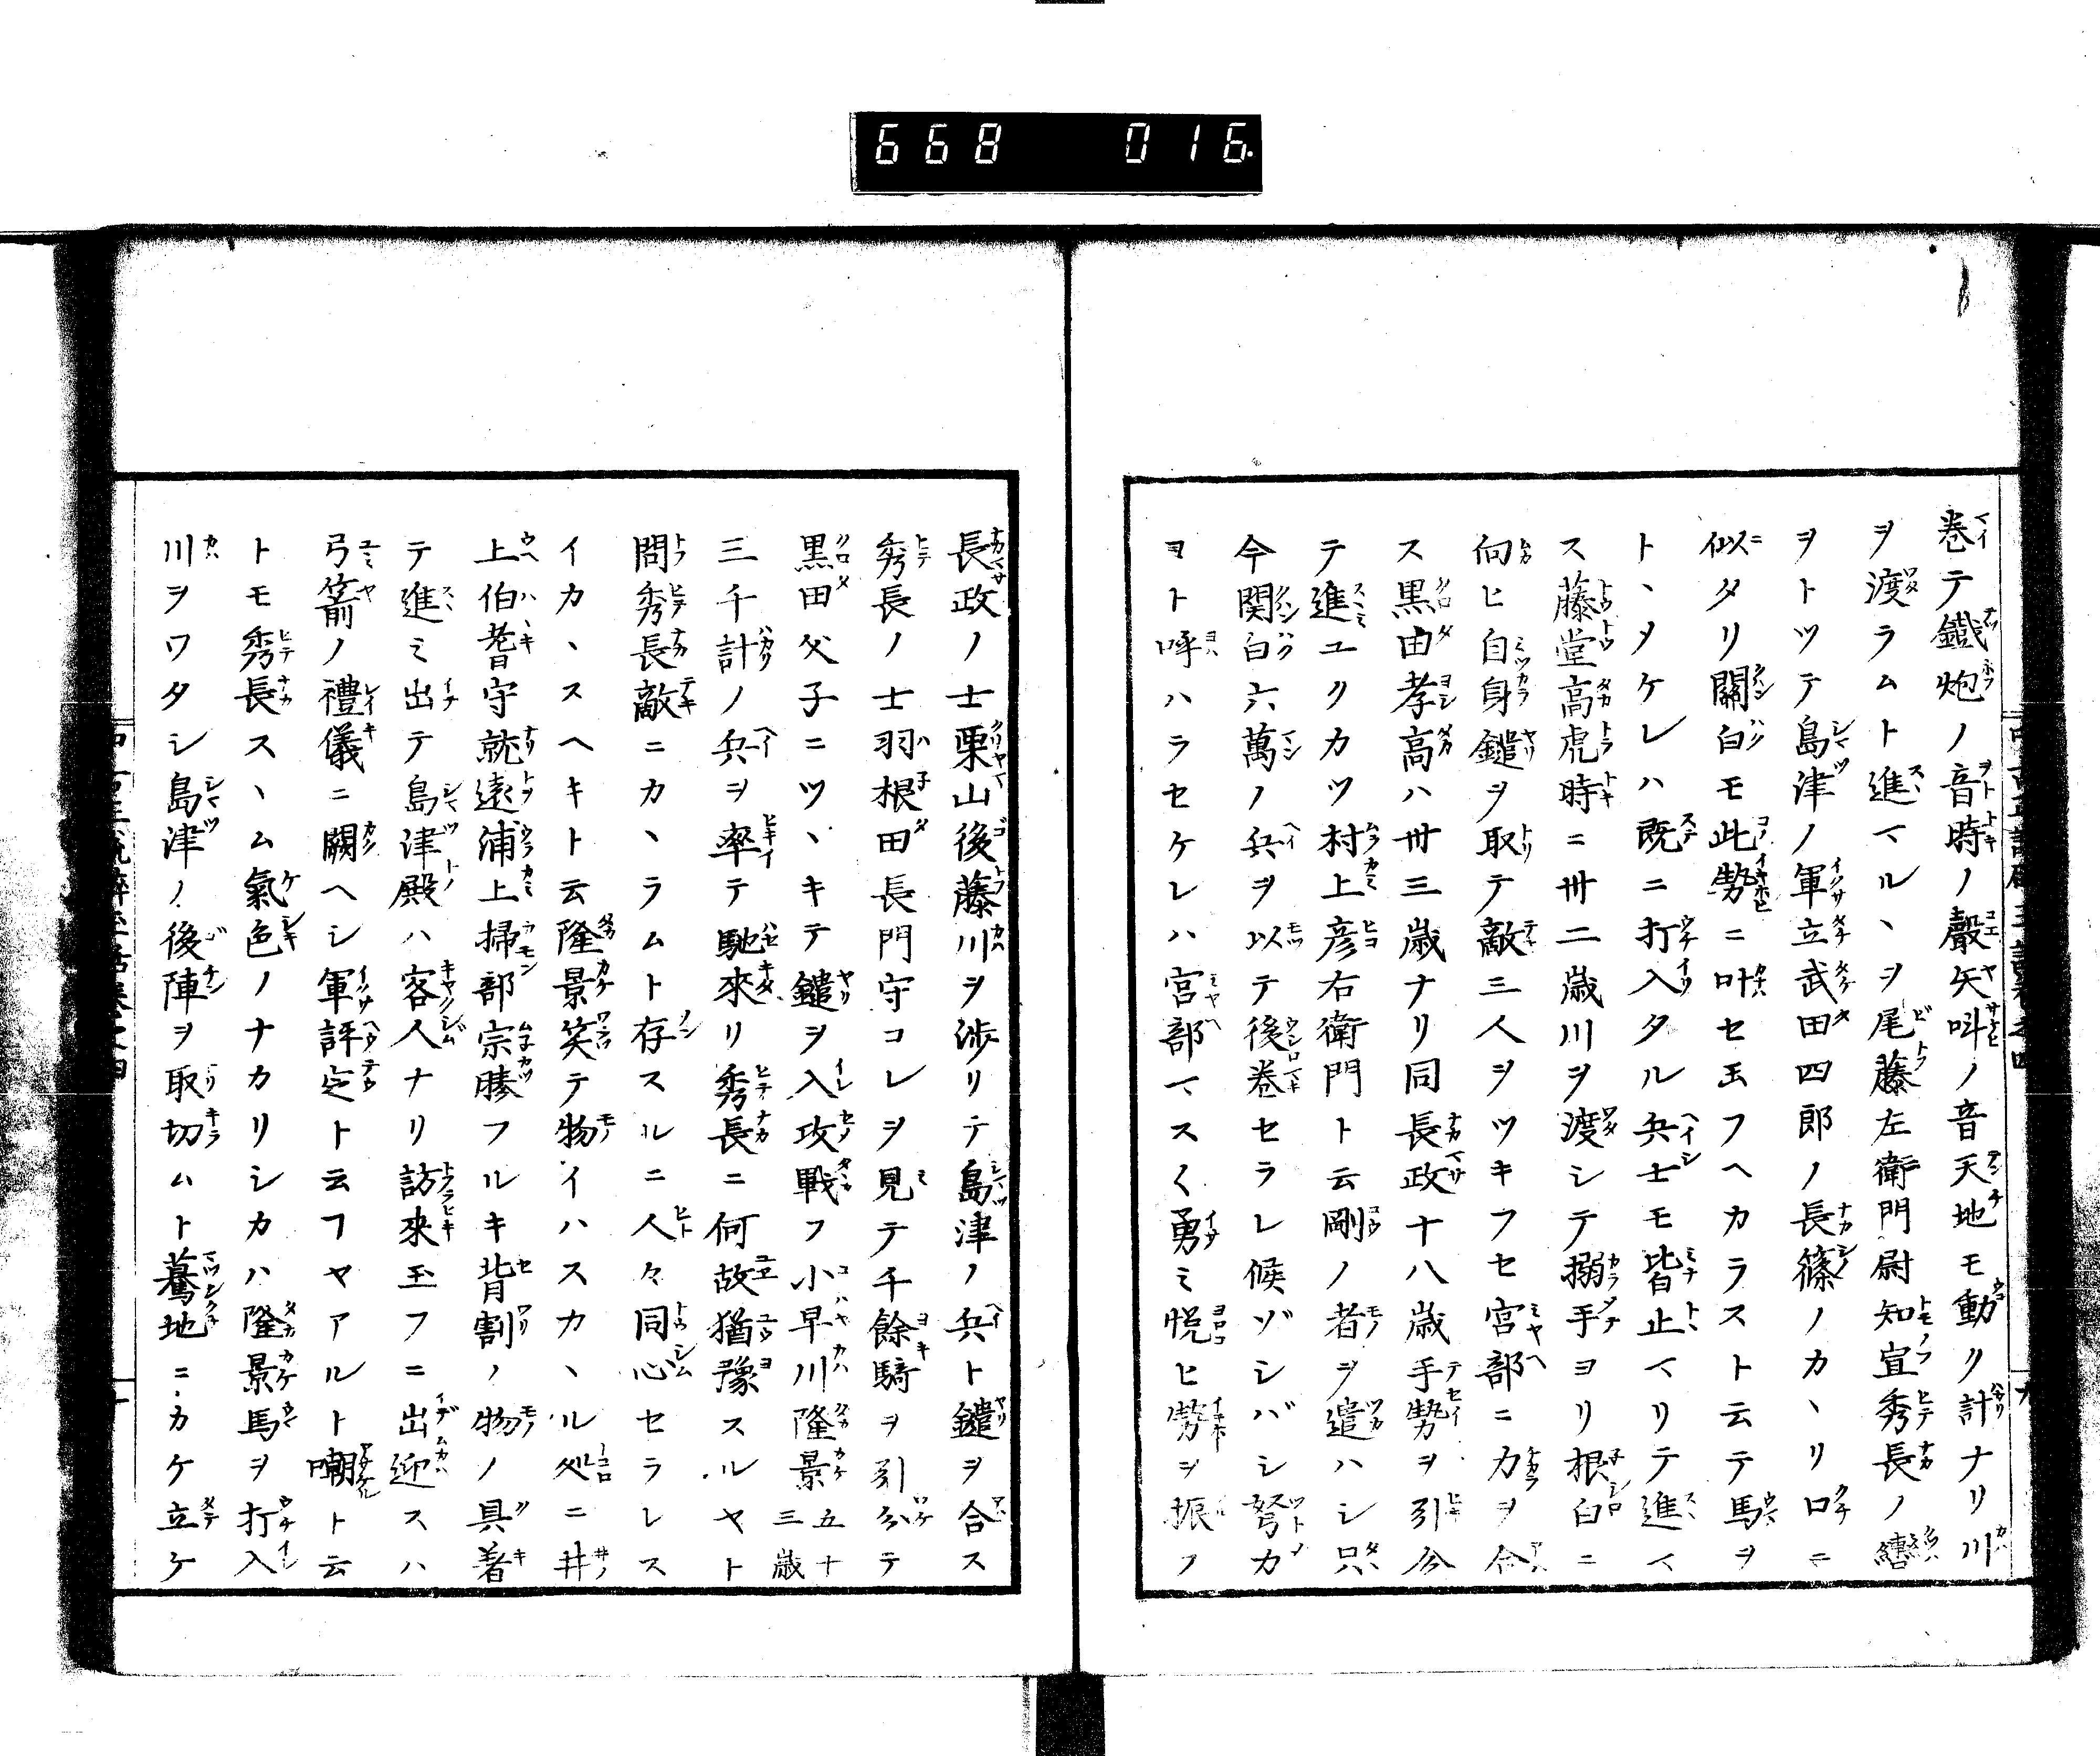 668 016.
巻テ鐵炮ノ音時ノ聲矢叫ノ音天地モ動ク計ナリ川
ヲ渡ラムト進マルヽヲ尾藤左衛門尉知宣秀長ノ轡
ヲトツテ島津ノ軍立武田四郎ノ長篠ノカヽリ口ニ
似タリ關白モ此勢ニ叶セ玉フヘカラスト云テ馬ヲ
トヽメケレハ既ニ打入タル兵士モ皆止マリテ進マ
ス藤堂高虎時ニ卅二歳川ヲ渡シテ搦手ヨリ根白ニ
向ヒ自身鑓ヲ取テ敵三人ヲツキフセ宮部ニ力ヲ合
ス黒田孝高ハ卅三歳ナリ同長政十八歳手勢ヲ引分
テ進ユクカツ村上彦右衛門ト云剛ノ者ヲ遣ハシ只
今関白六萬ノ兵ヲ以テ後巻セラレ候ゾシバシ弩カ
ヨト呼ハラセケレハ宮部マスく勇ミ悦ヒ勢ヲ振フ
長政ノ士栗山後藤川ヲ渉リテ島津ノ兵ト鑓ヲ合ス
秀長ノ士羽根田長門守コレヲ見テ千餘騎ヲ引分テ
黒田父子ニツヽキテ鑓ヲ入攻戰フ小早川隆景五十三歳
三千計ノ兵ヲ率テ馳來リ秀長ニ何故猶豫スルヤト
問秀長敵ニカヽラムト存スルニ人々同心セラレス
イカヽスヘキト云隆景笑テ物イハスカヽル処ニ井
上伯耆守就遠浦上掃部宗勝フルキ背割ノ物ノ具着
テ進ミ出テ島津殿ハ客人ナリ訪來玉フニ出迎スハ
弓箭ノ禮儀ニ闕ヘシ軍評定ト云フヤアルト嘲ト云
トモ秀長スヽム氣色ノナカリシカハ隆景馬ヲ打入
川ヲワタシ島津ノ後陣ヲ取切ムト驀地ニカケ立ケ